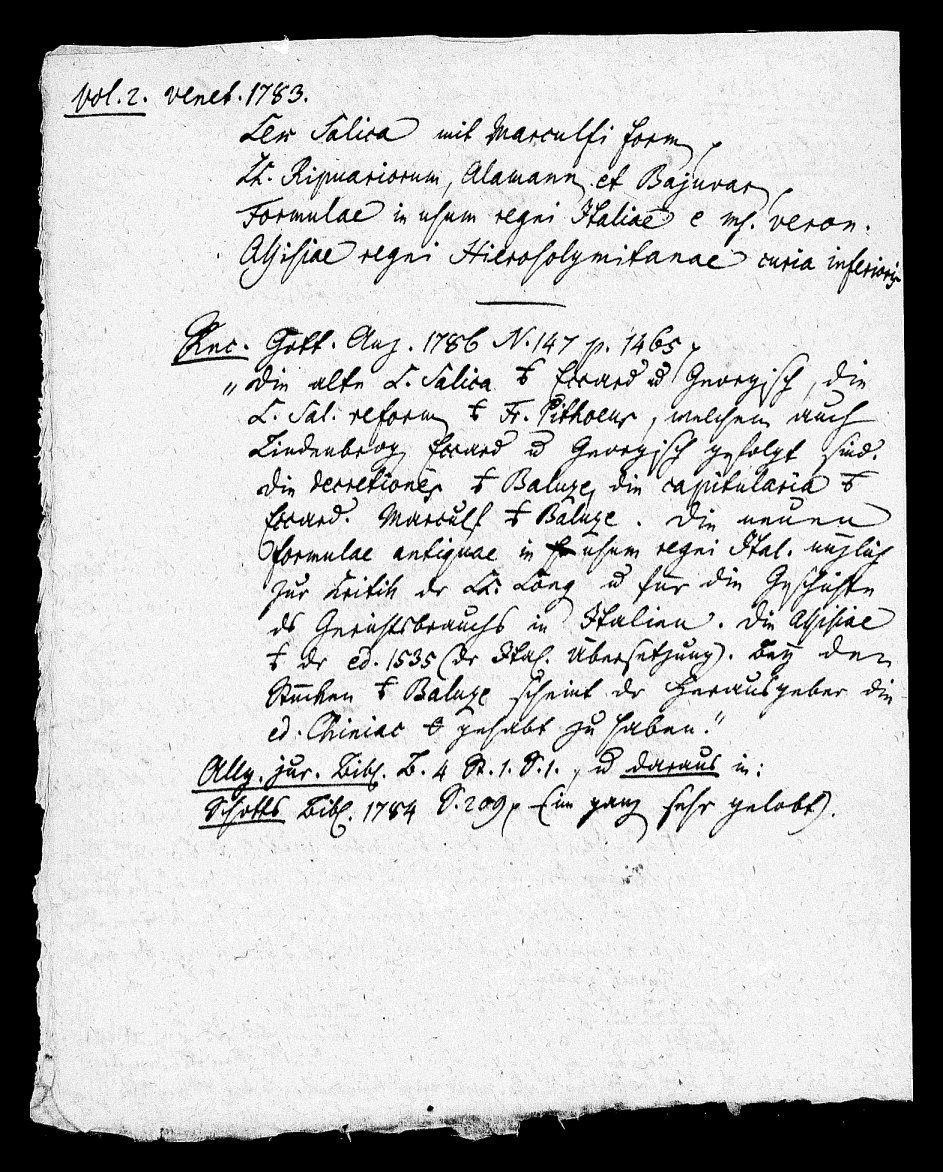 Vol. 2. Venet. 1783.
Lex Salica mit Marculfi form.
LL. Ripuariorum, Alamann. et Bajuvar.
Formulae in usum regni Italiae e ms. Veron.
Assisiae regni Hierosolymitanae curia inferioris
Rec. Gött. Anz. 1786 N. 147 p. 1465,
„Die alte L. Salica Eccard u Georgisch, die
L. Sal. reform. Fr. Pithoeus, welchem auch
Lindenbrog, Eccard u Georgisch gefolgt sind.
Die decretiones Baluze, die capitularia
Eccard. Marculf Baluze. Die neuen
formulae antiquae in usum regni Ital. nüzlich
zur Kritik der LL. Long u für die Geschichte
ds Gerichtsbrauchs in Italien. Die Assisiae
dr ed. 1535 (dr Ital. Übersetzung). Bey den
Stücken Baluze scheint dr Herausgeber die
ed. Chiniac gehabt zu haben."
Allg. jur. Bibl. B. 4 St. 1. S. 1., u daraus in:
Schotts Bibl. 1784 S. 209, (im ganz sehr gelobt).